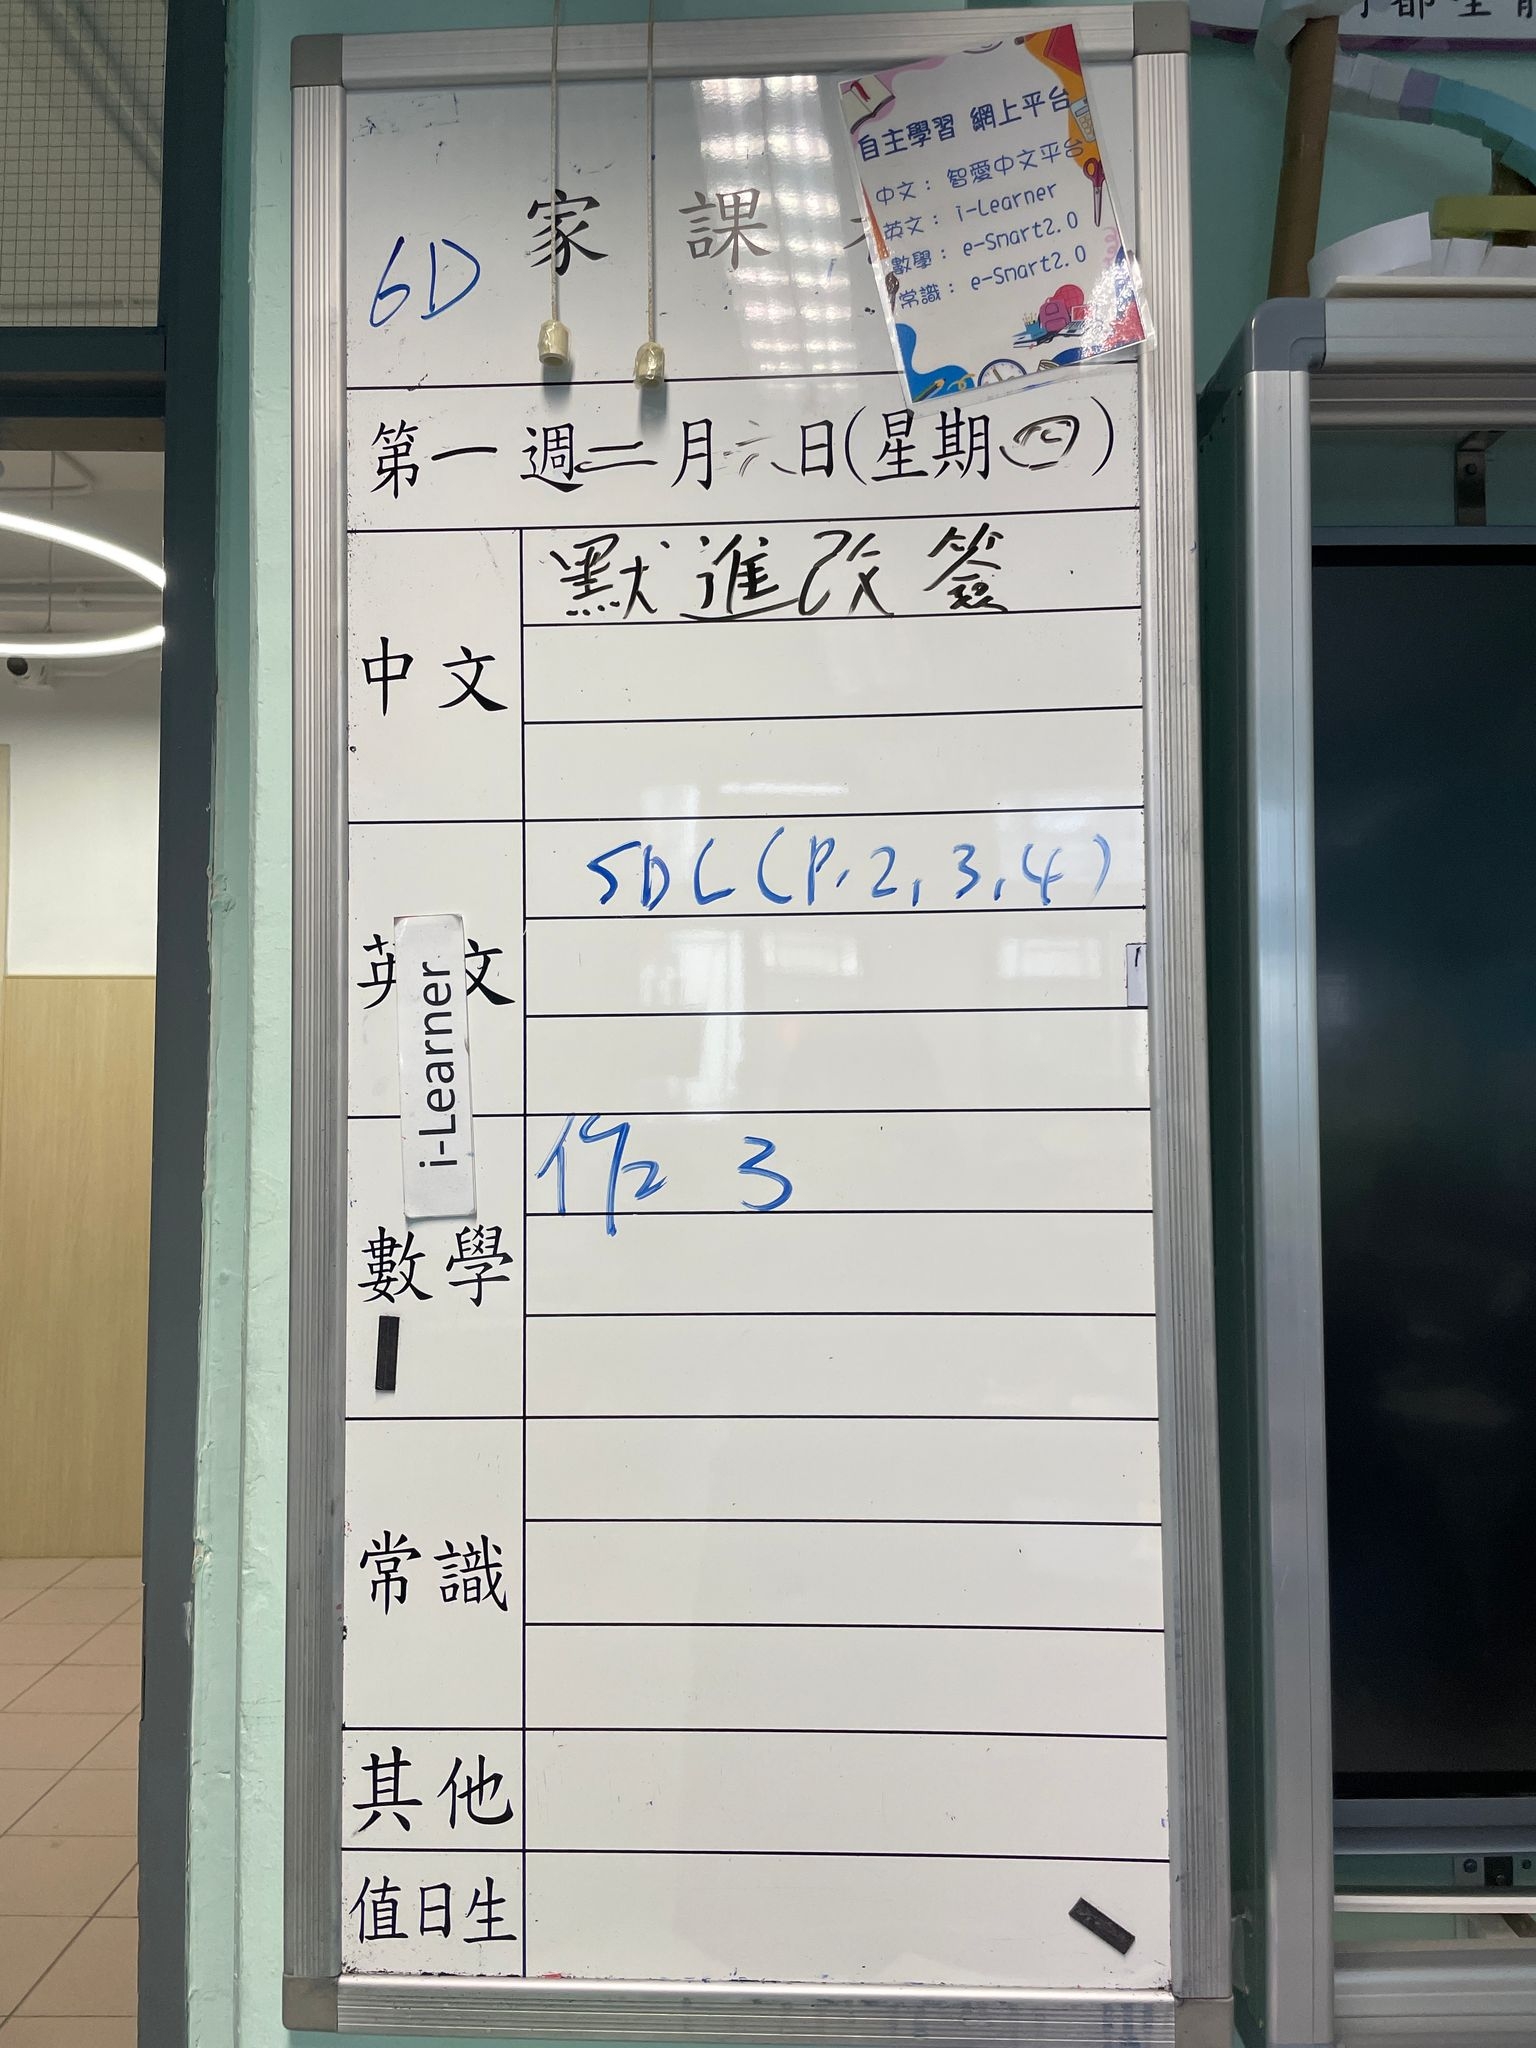 自主學習 網上平台
中文： 智愛中文平台
英文： i-Learner
數學： e-Smart2.0
常識： e-Smart2.0
6D
家課
第一週二月六日(星期四)
中文
默進改簽
英文
SDL(P.2,3,4)
i-Learner
數學
作 3
常識
其他
值日生